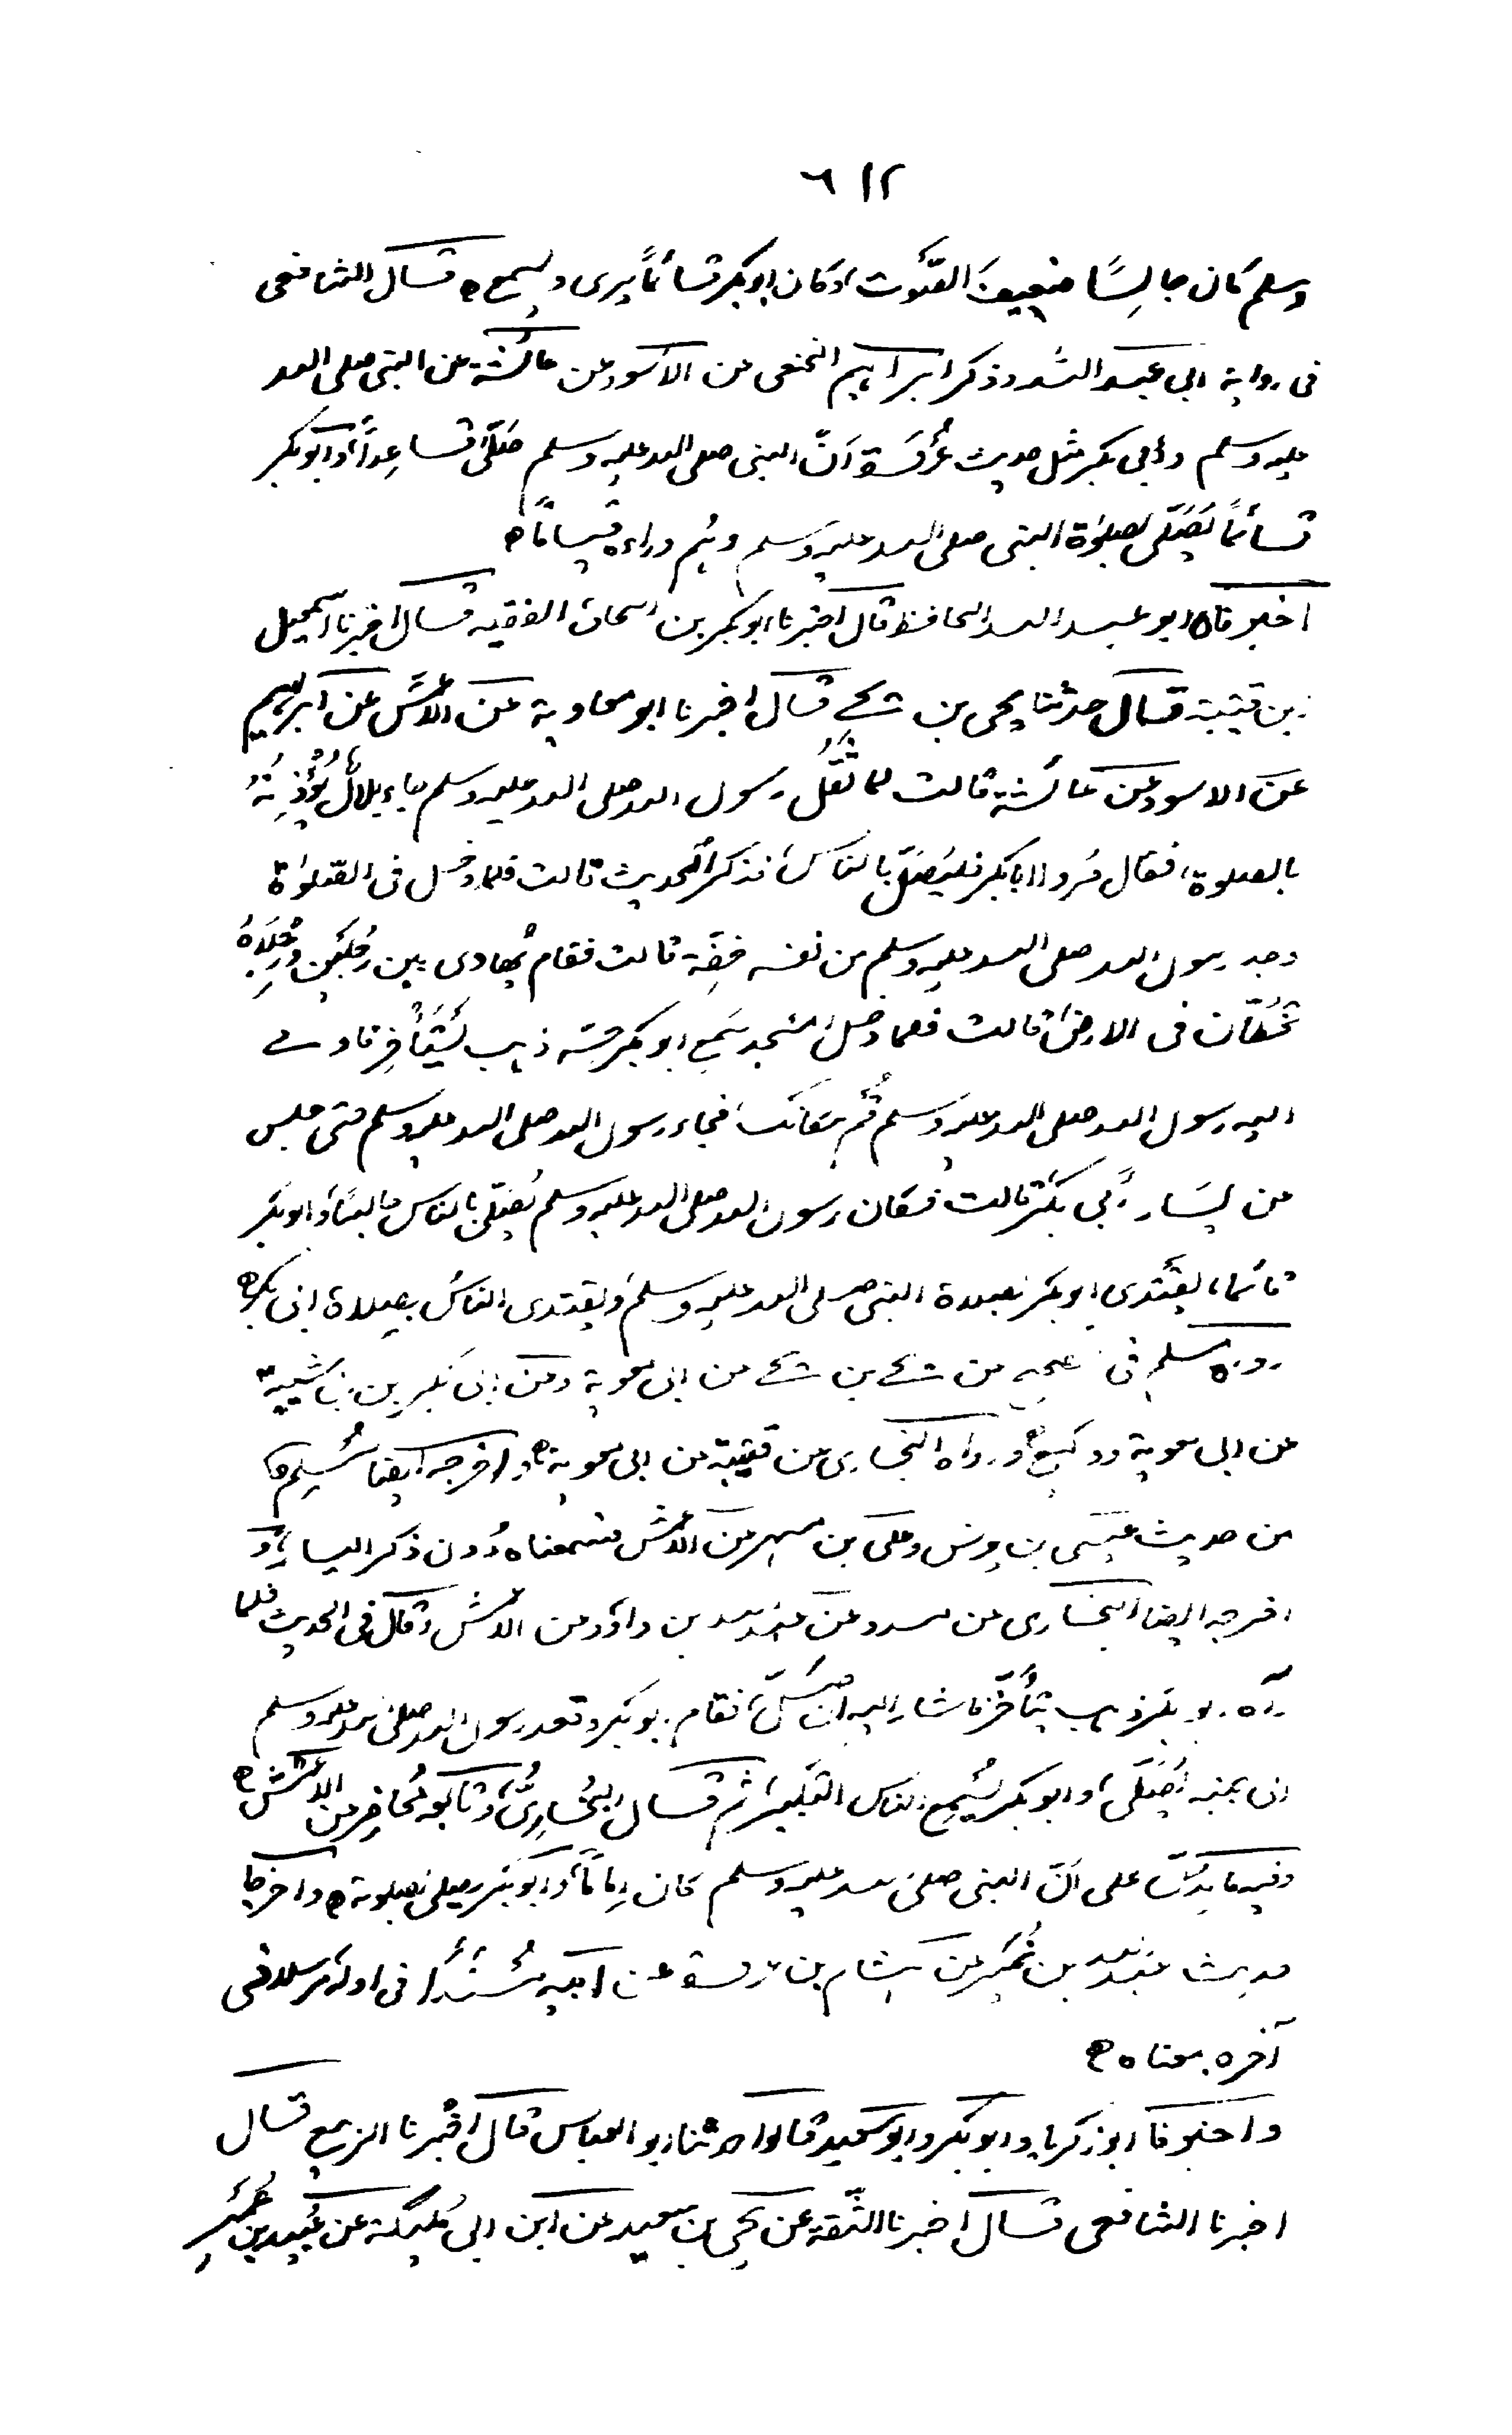 ٦١٢
وسلم كان جالسًا ضعيف الصّوت، وكان ابو بكر قائمًا يرى ويسمع ه قال الشافعى
فى رواية ابى عبد الله وذكر ابراہيم النخعى عن الاسود عن عائشة عن النبى صلى الله
عليه وسلم وابى بكر مثل حديث عُروَة انّ النبى صلى الله عليه وسلم صَلّى قاعِداً وابو بكر
قائمًا يُصَلّى بصلوٰة النبى صلى الله عليه وسلم وہُم وراءه قيامًا ه
اخبرناه ابو عبد الله الحافظ قال اخبرنا ابو بكر بن اسحاق الفقيه قال اخبرنا اسمعيل
بن قتيبة قال حدثنا يحيى بن يحيے قال اخبرنا ابو معاوية عن الاعمش عن ابراہيم
عن الاسود عن عائشة قالت لما ثَقُل رسول الله صلى الله عليه وسلم جاء بلالٌ يُؤْذِنُهُ
بالصلوة، فقال مُروا ابا بكر فليُصَلّ بالناس، فذكر الحديث قالت فلما دخل فى الصّلوٰة
وجد رسول الله صلى الله عليه وسلم من نفسه خِفّة قالت فقام يُهادى بين رَجُلَين ورِجْلَاهُ
تخُطّان فى الارض، قالت فلما دخل المسجد سَمِع ابو بكر حِسّه ذہب يَتَأَخّر فاومے
اليه رسول الله صلى الله عليه وسلم قُم مَكانَك، فجاء رسول الله صلى الله عليه وسلم حتى جلس
عن يَسَار أبى بكر، قالت فكان رسول الله صلى الله عليه وسلم يُصَلّى بالناس جالسًا، وابو بكر
قائما، يقتدى ابو بكر بصلاة النبى صلى الله عليه وسلم، ويقتدى الناسُ بصلاة ابى بكر ه
رواه مسلم فى صحيحه عن يحيے بن يحيے عن ابى معوية وعن ابى بكر بن ابى شيبة
عن ابى معوية ووكيع، ورواه البخارى عن قتيبة عن ابى معوية ه واخرجه ايضا مُسلِم ه
من حديث عيسى بن يونس وعلى بن مسہر عن الاعمش بمعناه دُون ذكر اليسار، و
اخرجه ايضا البخارى عن مسدد عن عبد الله بن داؤد عن الاعمش وقال فى الحديث فلما
رآه ابو بكر ذہب يتأخّر فاشار اليه ان صَلّ، فقام ابو بكر وقعد رسول الله صلى الله عليه وسلم
الى جنبه يُصَلّى، وابو بكر يُسمِع الناس التكبير، ثم قال البُخارِىُّ، وتابعه مُحاضِر عن الاعمش ه
وفيه ما يدُلّ على انّ النبى صلى الله عليه وسلم كان إمامًا، وابو بكر يصلى بصلوته ه واخرجا
حديث عبد الله بن نُمَير عن ہشام بن عروة عن ابيه مُسْنَدًا فى اوله مرسلا فى
آخره بمعناه ه
واخبرنا ابو زكريا وابو بكر وابو سعيد قالوا حدثنا ابو العباس قال اخبرنا الربيع قال
اخبرنا الشافعى قال اخبرنا الثّقة عن يحيى بن سعيد عن ابن ابى مُلَيكة عن عُبَيد بن عُمَيْرٍ